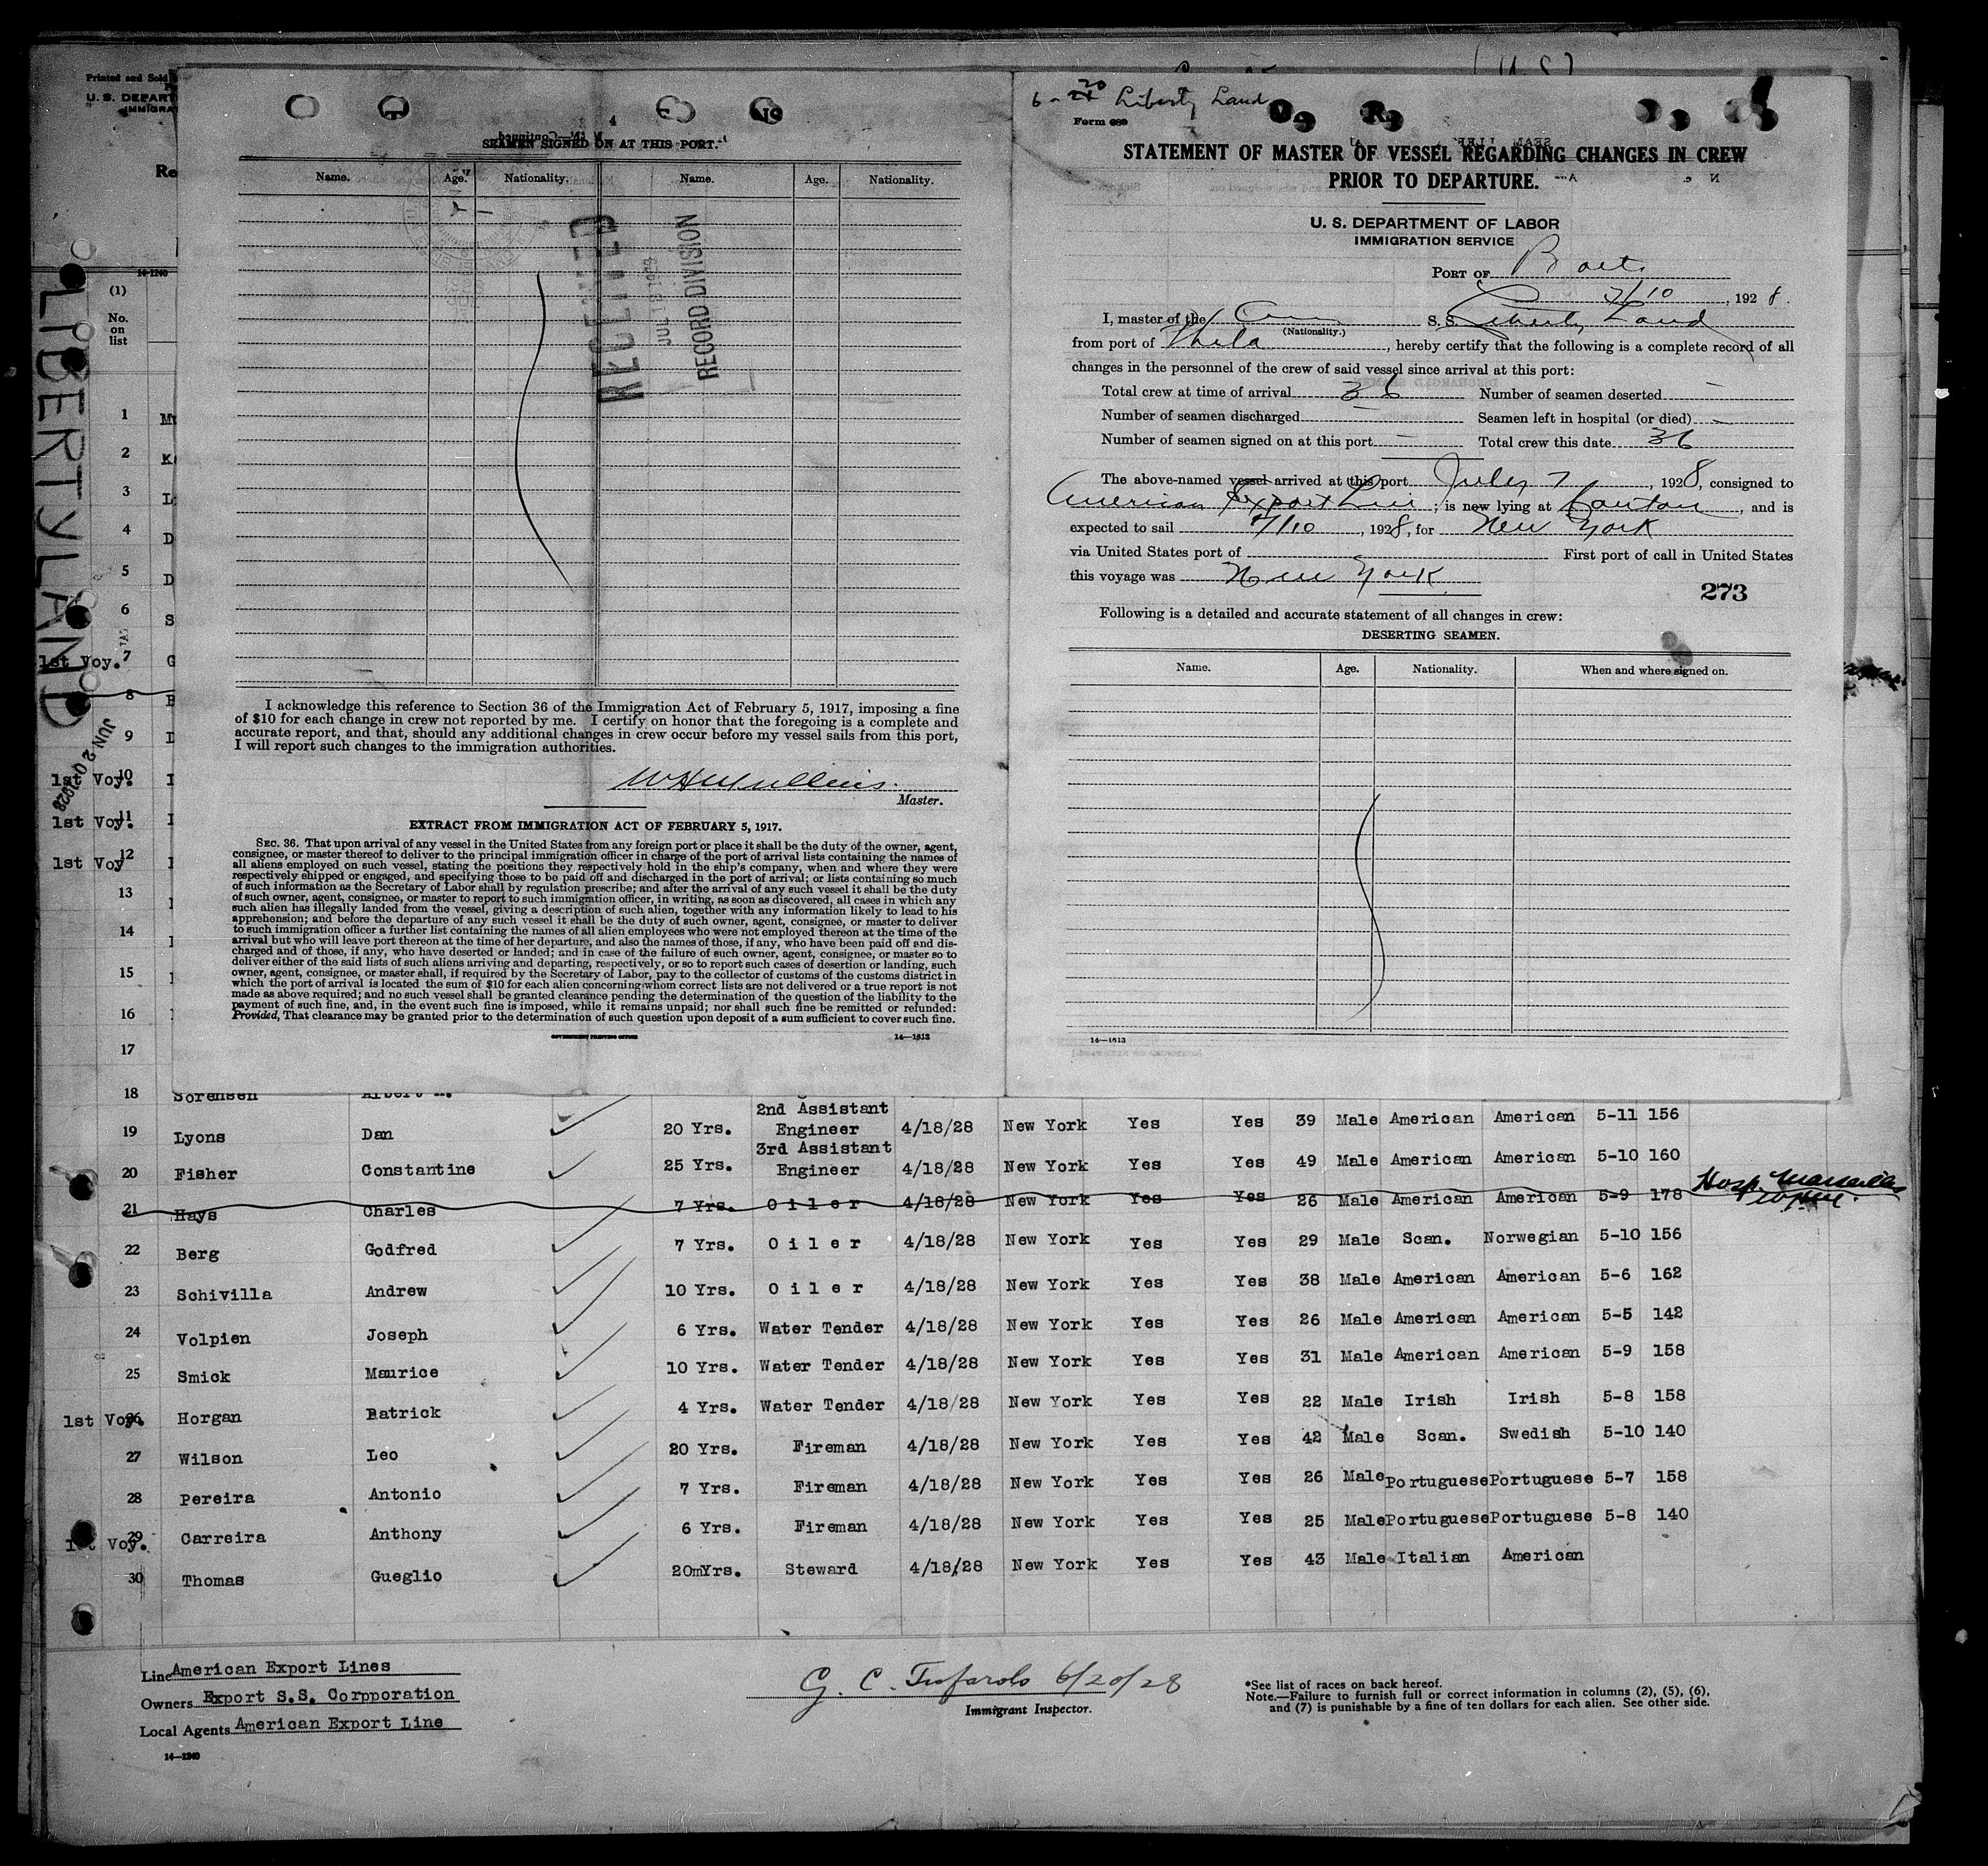 Printed and Sold
U. S. DEPART
IMMIGRA
Re
14-1240
(1)
No.
on
list
LIBERTYLAND
JUN 20 1928
1
2
3
4
5
6
1st Voy. 7
8
9
1st Voy. 10
1st Voy. 11
1st Voy 12
13
14
15
16
17
4
SEAMEN SIGNED ON AT THIS PORT.
Name. Age. Nationality. Name. Age. Nationality.
RECEIVED
RECORD DIVISION
I acknowledge this reference to Section 36 of the Immigration Act of February 5, 1917, imposing a fine
of $10 for each change in crew not reported by me. I certify on honor that the foregoing is a complete and
accurate report, and that, should any additional changes in crew occur before my vessel sails from this port,
I will report such changes to the immigration authorities.
Master.
EXTRACT FROM IMMIGRATION ACT OF FEBRUARY 5, 1917.
SEC. 36. That upon arrival of any vessel in the United States from any foreign port or place it shall be the duty of the owner, agent,
consignee, or master thereof to deliver to the principal immigration officer in charge of the port of arrival lists containing the names of
all aliens employed on such vessel, stating the positions they respectively hold in the ship's company, when and where they were
respectively shipped or engaged, and specifying those to be paid off and discharged in the port of arrival; or lists containing so much
of such information as the Secretary of Labor shall by regulation prescribe; and after the arrival of any such vessel it shall be the duty
of such owner, agent, consignee, or master to report to such immigration officer, in writing, as soon as discovered, all cases in which any
such alien has illegally landed from the vessel, giving a description of such alien, together with any information likely to lead to his
apprehension; and before the departure of any such vessel it shall be the duty of such owner, agent, consignee, or master to deliver
to such immigration officer a further list containing the names of all alien employees who were not employed thereon at the time of the
arrival but who will leave port thereon at the time of her departure, and also the names of those, if any, who have been paid off and dis-
charged and of those, if any, who have deserted or landed; and in case of the failure of such owner, agent, consignee, or master so to
deliver either of the said lists of such aliens arriving and departing, respectively, or so to report such cases of desertion or landing, such
owner, agent, consignee, or master shall, if required by the Secretary of Labor, pay to the collector of customs of the customs district in
which the port of arrival is located the sum of $10 for each alien concerning whom correct lists are not delivered or a true report is not
made as above required; and no such vessel shall be granted clearance pending the determination of the question of the liability to the
payment of such fine, and, in the event such fine is imposed, while it remains unpaid; nor shall such fine be remitted or refunded:
Provided, That clearance may be granted prior to the determination of such question upon deposit of a sum sufficient to cover such fine.
GOVERNMENT PRINTING OFFICE 14—1613
6-20 Liberty Land
Form 689
STATEMENT OF MASTER OF VESSEL REGARDING CHANGES IN CREW
PRIOR TO DEPARTURE.
U. S. DEPARTMENT OF LABOR
IMMIGRATION SERVICE
PORT OF Balto
7/10, 1928.
I, master of the Am S. S. Liberty Land
(Nationality.)
from port of Phila, hereby certify that the following is a complete record of all
changes in the personnel of the crew of said vessel since arrival at this port:
Total crew at time of arrival 36 Number of seamen deserted -
Number of seamen discharged - Seamen left in hospital (or died) -
Number of seamen signed on at this port - Total crew this date 36
The above-named vessel arrived at this port July 7, 1928, consigned to
American Export Line; is now lying at Canton, and is
expected to sail 7/10, 1928, for New York
via United States port of First port of call in United States
this voyage was New York
273
Following is a detailed and accurate statement of all changes in crew:
DESERTING SEAMEN.
Name. Age. Nationality. When and where signed on.
14—1613
18 Sorensen
19 Lyons Dan 20 Yrs. 2nd Assistant Engineer 4/18/28 New York Yes Yes 39 Male American American 5-11 156
20 Fisher Constantine 25 Yrs. 3rd Assistant Engineer 4/18/28 New York Yes Yes 49 Male American American 5-10 160
21 Hays Charles 7 Yrs. Oiler 4/18/28 New York Yes Yes 26 Male American American 5-9 178 Hosp. Marseilles
22 Berg Godfred 7 Yrs. Oiler 4/18/28 New York Yes Yes 29 Male Scan. Norwegian 5-10 156
23 Schivilla Andrew 10 Yrs. Oiler 4/18/28 New York Yes Yes 38 Male American American 5-6 162
24 Volpien Joseph 6 Yrs. Water Tender 4/18/28 New York Yes Yes 26 Male American American 5-5 142
25 Smick Maurice 10 Yrs. Water Tender 4/18/28 New York Yes Yes 31 Male American American 5-9 158
1st Voy. 26 Horgan Patrick 4 Yrs. Water Tender 4/18/28 New York Yes Yes 22 Male Irish Irish 5-8 158
27 Wilson Leo 20 Yrs. Fireman 4/18/28 New York Yes Yes 42 Male Scan. Swedish 5-10 140
28 Pereira Antonio 7 Yrs. Fireman 4/18/28 New York Yes Yes 26 Male Portuguese Portuguese 5-7 158
1st Voy. 29 Carreira Anthony 6 Yrs. Fireman 4/18/28 New York Yes Yes 25 Male Portuguese Portuguese 5-8 140
30 Thomas Gueglio 20mYrs. Steward 4/18/28 New York Yes Yes 43 Male Italian American
Line American Export Lines
Owners Export S.S. Corpporation
Local Agents American Export Line
14—1240
G. C. 6/20/28
Immigrant Inspector.
*See list of races on back hereof.
Note.—Failure to furnish full or correct information in columns (2), (5), (6),
and (7) is punishable by a fine of ten dollars for each alien. See other side.